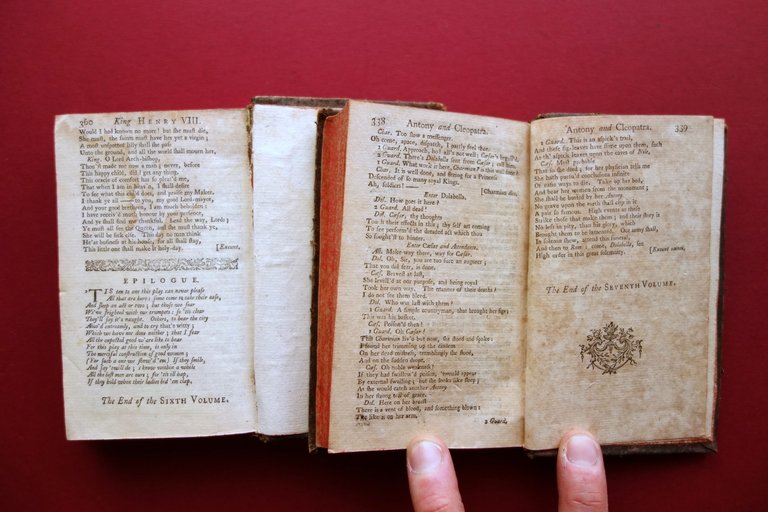 360 King HENRY VIII.
Would I had known no more! but she must die,
She must, the saints must have her yet a virgin;
A most unspotted lilly shall she pass
Unto the ground, and all the world shall mourn her.
King. O Lord Arch-bishop,
Thou'st made me now a man; never, before
This happy child, did I get any thing.
This oracle of comfort has so pleas'd me,
That when I am in heav'n, I shall desire
To see what this child does, and praise my Maker.
I thank ye all — to you, my good Lord-mayor,
And your good brethren, I am much beholden:
I have receiv'd much honour by your presence,
And ye shall find me thankful. Lead the way, Lords;
Ye must all see the Queen, and she must thank ye,
She will be sick else. This day no man think
H'as business at his house, for all shall stay,
This little one shall make it holy-day. [Exeunt.
EPILOGUE.
'TIS ten to one this play can never please
All that are here: some come to take their ease,
And sleep an act or two; but those we fear
We've frighted with our trumpets: so 'tis clear
They'll say it's naught. Others, to hear the city
Abus'd extreamly, and to cry that's witty;
Which we have not done neither; that I fear
All the expected good we are like to hear
For this play at this time, is only in
The merciful construction of good women;
(For such a one we shew'd 'em) If they smile,
And say 'twill do; I know within a while
All the best men are ours; for 'tis ill hap,
If they hold when their ladies bid 'em clap.
The End of the SIXTH VOLUME.
338 Antony and Cleopatra.
Char. Too slow a messenger.
Oh come, apace, dispatch, I partly feel thee.
1 Guard. Approach, hoa! all's not well: Cæsar's beguil'd.
2 Guard. There's Dolabella sent from Cæsar; call him.
1 Guard. What work is here, Charmian? is this well done?
Char. It is well done, and fitting for a Princess
Descended of so many royal Kings.
Ah, soldiers! — [Charmian dies.
Enter Dolabella.
Dol. How goes it here?
2 Guard. All dead!
Dol. Cæsar, thy thoughts
Touch their effects in this; thy self art coming
To see perform'd the dreaded act which thou
So sought'st to hinder.
Enter Cæsar and Attendants.
All. Make way there, way for Cæsar.
Dol. Oh, Sir, you are too sure an augurer;
That you did fear, is done.
Cæs. Bravest at last,
She levell'd at our purpose, and being royal
Took her own way. The manner of their deaths?
I do not see them bleed.
Dol. Who was last with them?
1 Guard. A simple countryman, that brought her figs:
This was his basket.
Cæs. Poison'd then!
1 Guard. Oh Cæsar!
This Charmian liv'd but now, she stood and spake:
I found her trimming up the diadem
On her dead mistress, tremblingly she stood,
And on the sudden dropt.
Cæs. Oh noble weakness!
If they had swallow'd poison, 'twould appear
By external swelling; but she looks like sleep;
As she would catch another Antony
In her strong toil of grace.
Dol. Here on her breast
There is a vent of blood, and something blown:
The like is on her arm.
2 Guard,
Antony and Cleopatra. 339
1 Guard. This is an aspick's trail,
And these fig-leaves have slime upon them, such
As th' aspick leaves upon the caves of Nile.
Cæs. Most probable
That so she dy'd; for her physician tells me
She hath pursu'd conclusions infinite
Of easie ways to die. Take up her bed,
And bear her women from the monument;
She shall be buried by her Antony.
No grave upon the earth shall clip in it
A pair so famous. High events as these
Strike those that make them; and their story is
No less in pity, than his glory, which
Brought them to be lamented. Our army shall,
In solemn shew, attend this funeral,
And then to Rome: come, Dolabella, see
High order in this great solemnity. [Exeunt omnes.
The End of the SEVENTH VOLUME.